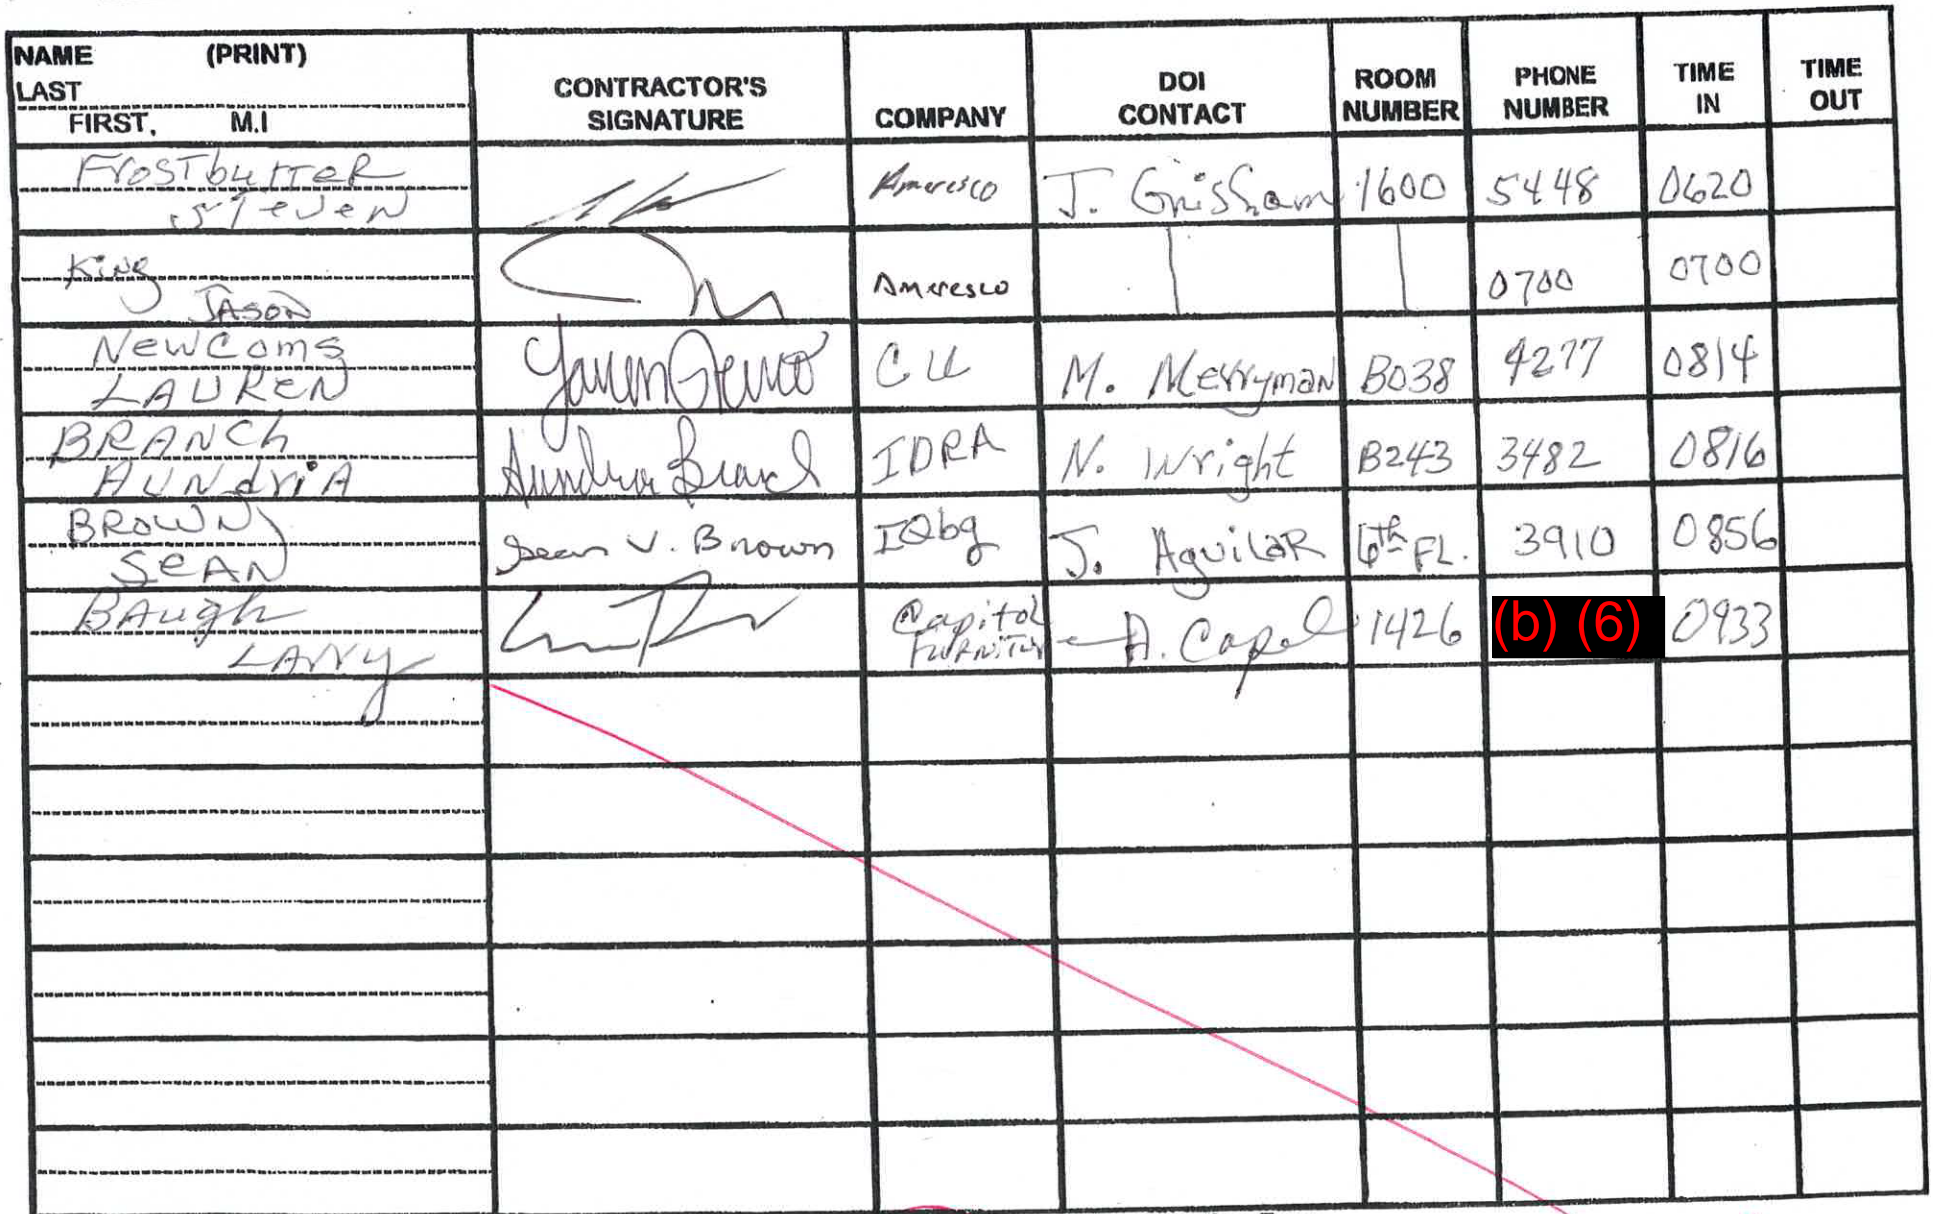 NAME (PRINT)
LAST
FIRST, M.I
CONTRACTOR'S
SIGNATURE
COMPANY
DOI
CONTACT
ROOM
NUMBER
PHONE
NUMBER
TIME
IN
TIME
OUT
Frostbutter
Steven
Ameresco
J. Grisham
1600
5448
0620
King
JASON
Ameresco
0700
0700
NewComs
LAUREN
CU
M. Merryman
B038
4277
0814
BRANCh
AUNdriA
IDRA
N. Wright
B243
3482
0816
BROWN
SEAN
Sean V. Brown
IQbg
J. AguilaR
6th FL.
3910
0856
BAugh
LArry
Capitol
FURNITURE
A. Capel
1426
(b) (6)
0933